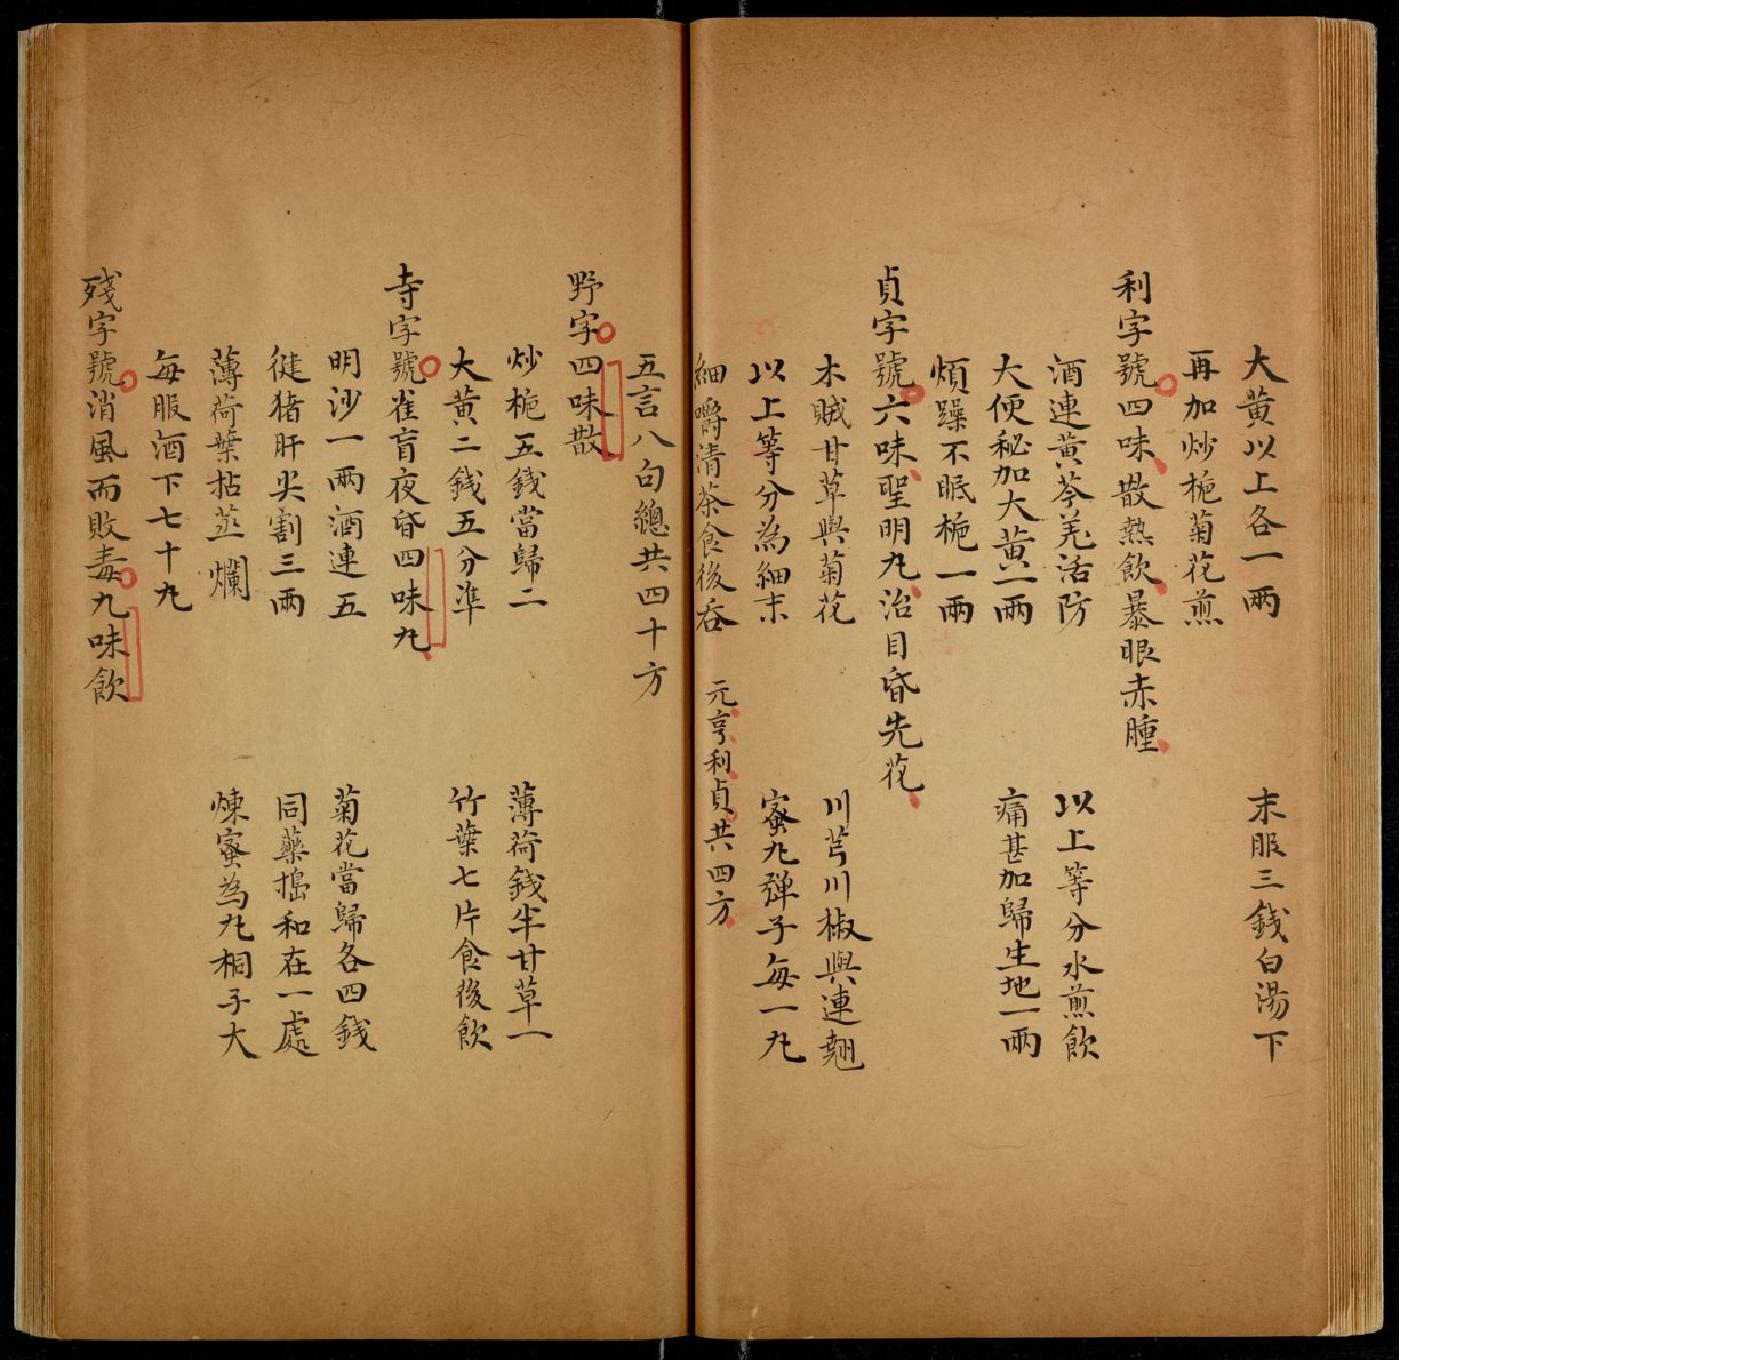 大黄以上各一兩　末服三錢白湯下
再加炒梔菊花煎
利字號四味散熱飲暴眼赤腫
酒連黄芩羌活防　以上等分水煎飲
大便秘加大黄一兩　痛甚加歸生地一兩
煩躁不眠梔一兩
貞字號六味聖明丸治目昏先花
木賊甘草與菊花　川芎川椒與連翹
以上等分為細末　蜜丸彈子每一丸
細嚼清茶食後吞　元亨利貞共四方
五言八句總共四十方
野字四味散
炒梔五錢當歸二　薄荷錢半甘草一
大黄二錢五分準　竹葉七片食後飲
寺字號雀盲夜昏四味丸
明沙一兩酒連五　菊花當歸各四錢
健猪肝尖割三兩　同藥搗和在一處
薄荷葉拈並爛　煉蜜為丸桐子大
每服酒下七十丸
殘字號消風而敗毒九味飲